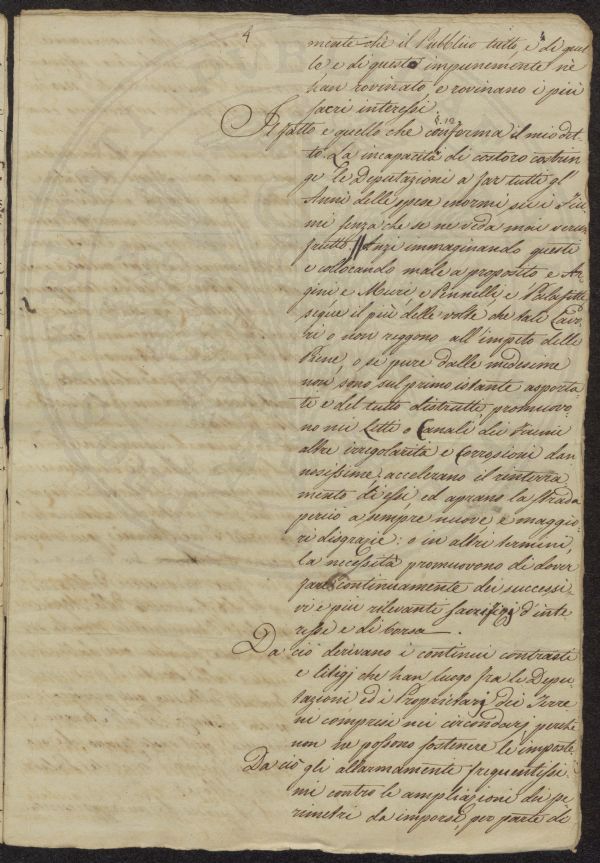 4
mente che il Pubblico tutto, e di quel
lo e di questo impunemente nè
han rovinato, e rovinano i più
sacri interessi.
Il fatto e quello che conferma il mio det
to. La incapacità di costoro costrin
ge le Deputazioni a far tutti gl'
Anni delle spese enormi su i Fiu
mi senza che se ne veda mai verun
frutto. Anzi immaginando questi
e collocando male a proposito e Ar
gini e Muri e Pennelli, e Palafitte
segue il più delle volte che tali Lavo
ri o non reggono all'impeto delle
Piene, o se pure dalle medesime
non sono sul primo istante asporta
ti e del tutto distrutti, promuovo
no nei Letti o Canali dei Fiumi
altre irregolarità e Corrosioni dan
nosissime, accelerano il rinterra
mento di essi ed aprano la strada
perciò a sempre nuove e maggio
ri disgrazie: o in altri termini,
la necessità promuovono di dover
fare continuamente dei successi
vi e più rilevanti sacrifizj d'inte
ressi e di borsa.
Da ciò derivano i continui contrasti
e litigj che han luogo fra le Depu
tazioni ed i Proprietarj dei Terre
ni compresi nei circondarj perchè
non ne possono sostenere le imposte
Da ciò gli allarmamente frequentissi
mi contro le ampliazioni dei pe
rimetri da imporsi, per parte di